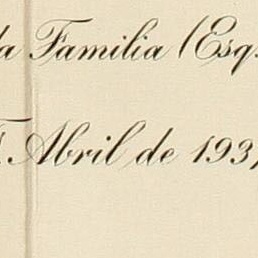 da Familia (Esq.
Abril de 193